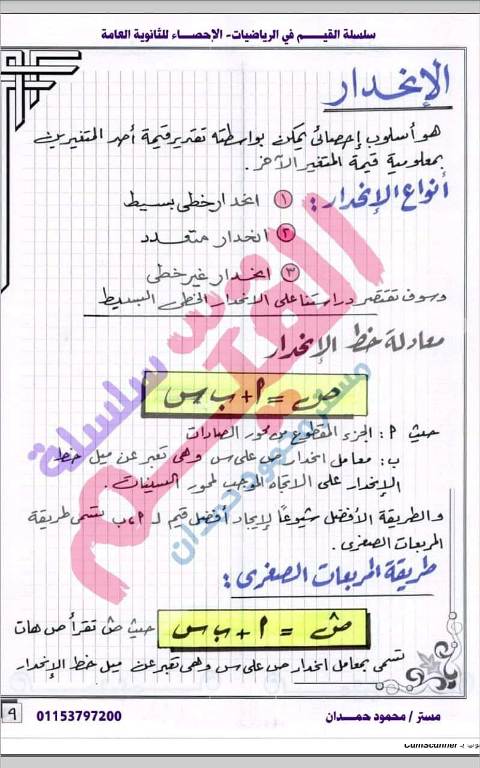 سلسلة القيم في الرياضيات - الإحصاء للثانوية العامة
الإنحدار
هو أسلوب إحصائي يمكن بواسطته تقدير قيمة أحد المتغيرين
بمعلومية قيمة المتغير الآخر.
أنواع الإنحدار:
١ انحدار خطى بسيط
٢ انحدار متعدد
٣ انحدار غير خطى
وسوف تقتصر دراستنا على الانحدار الخطى البسيط
معادلة خط الإنحدار
ص = ا + ب س
حيث ا: الجزء المقطوع من محور الصادات
ب: معامل انحدار ص على س وهى تعبر عن ميل خط
الإنحدار على الاتجاه الموجب لمحور السينات.
والطريقة الأفضل شيوعاً لإيجاد أفضل قيم لـ ا، ب تسمى طريقة
المربعات الصغرى.
طريقة المربعات الصغرى:
صَ = ا + ب س حيث صَ تقرأ ص هات
تسمى بمعامل انحدار ص على س وهى تعبر عن ميل خط الإنحدار
سلسلة
القيم
مستر محمود حمدان
مستر / محمود حمدان
01153797200
٩
CamScanner